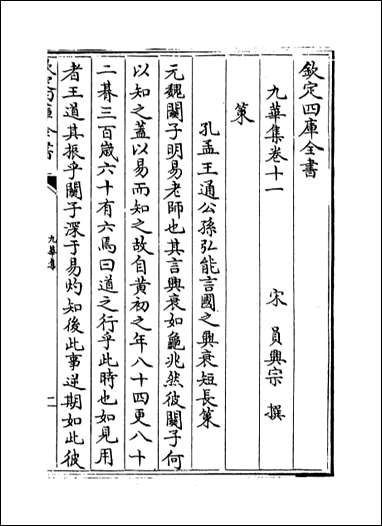 欽定四庫全書
九華集卷十一
宋 員興宗 撰
策
孔孟王通公孫弘能言國之興衰短長策
元魏闗子明易老師也其言興衰如龜兆然彼闗子何
以知之蓋以易而知之故自黃初之年八十四更八十
二朞三百歲六十有六焉曰道之行乎此時也如見用
者王道其振乎闗子深于易灼知後此事逆期如此彼
欽定四庫全書
九華集